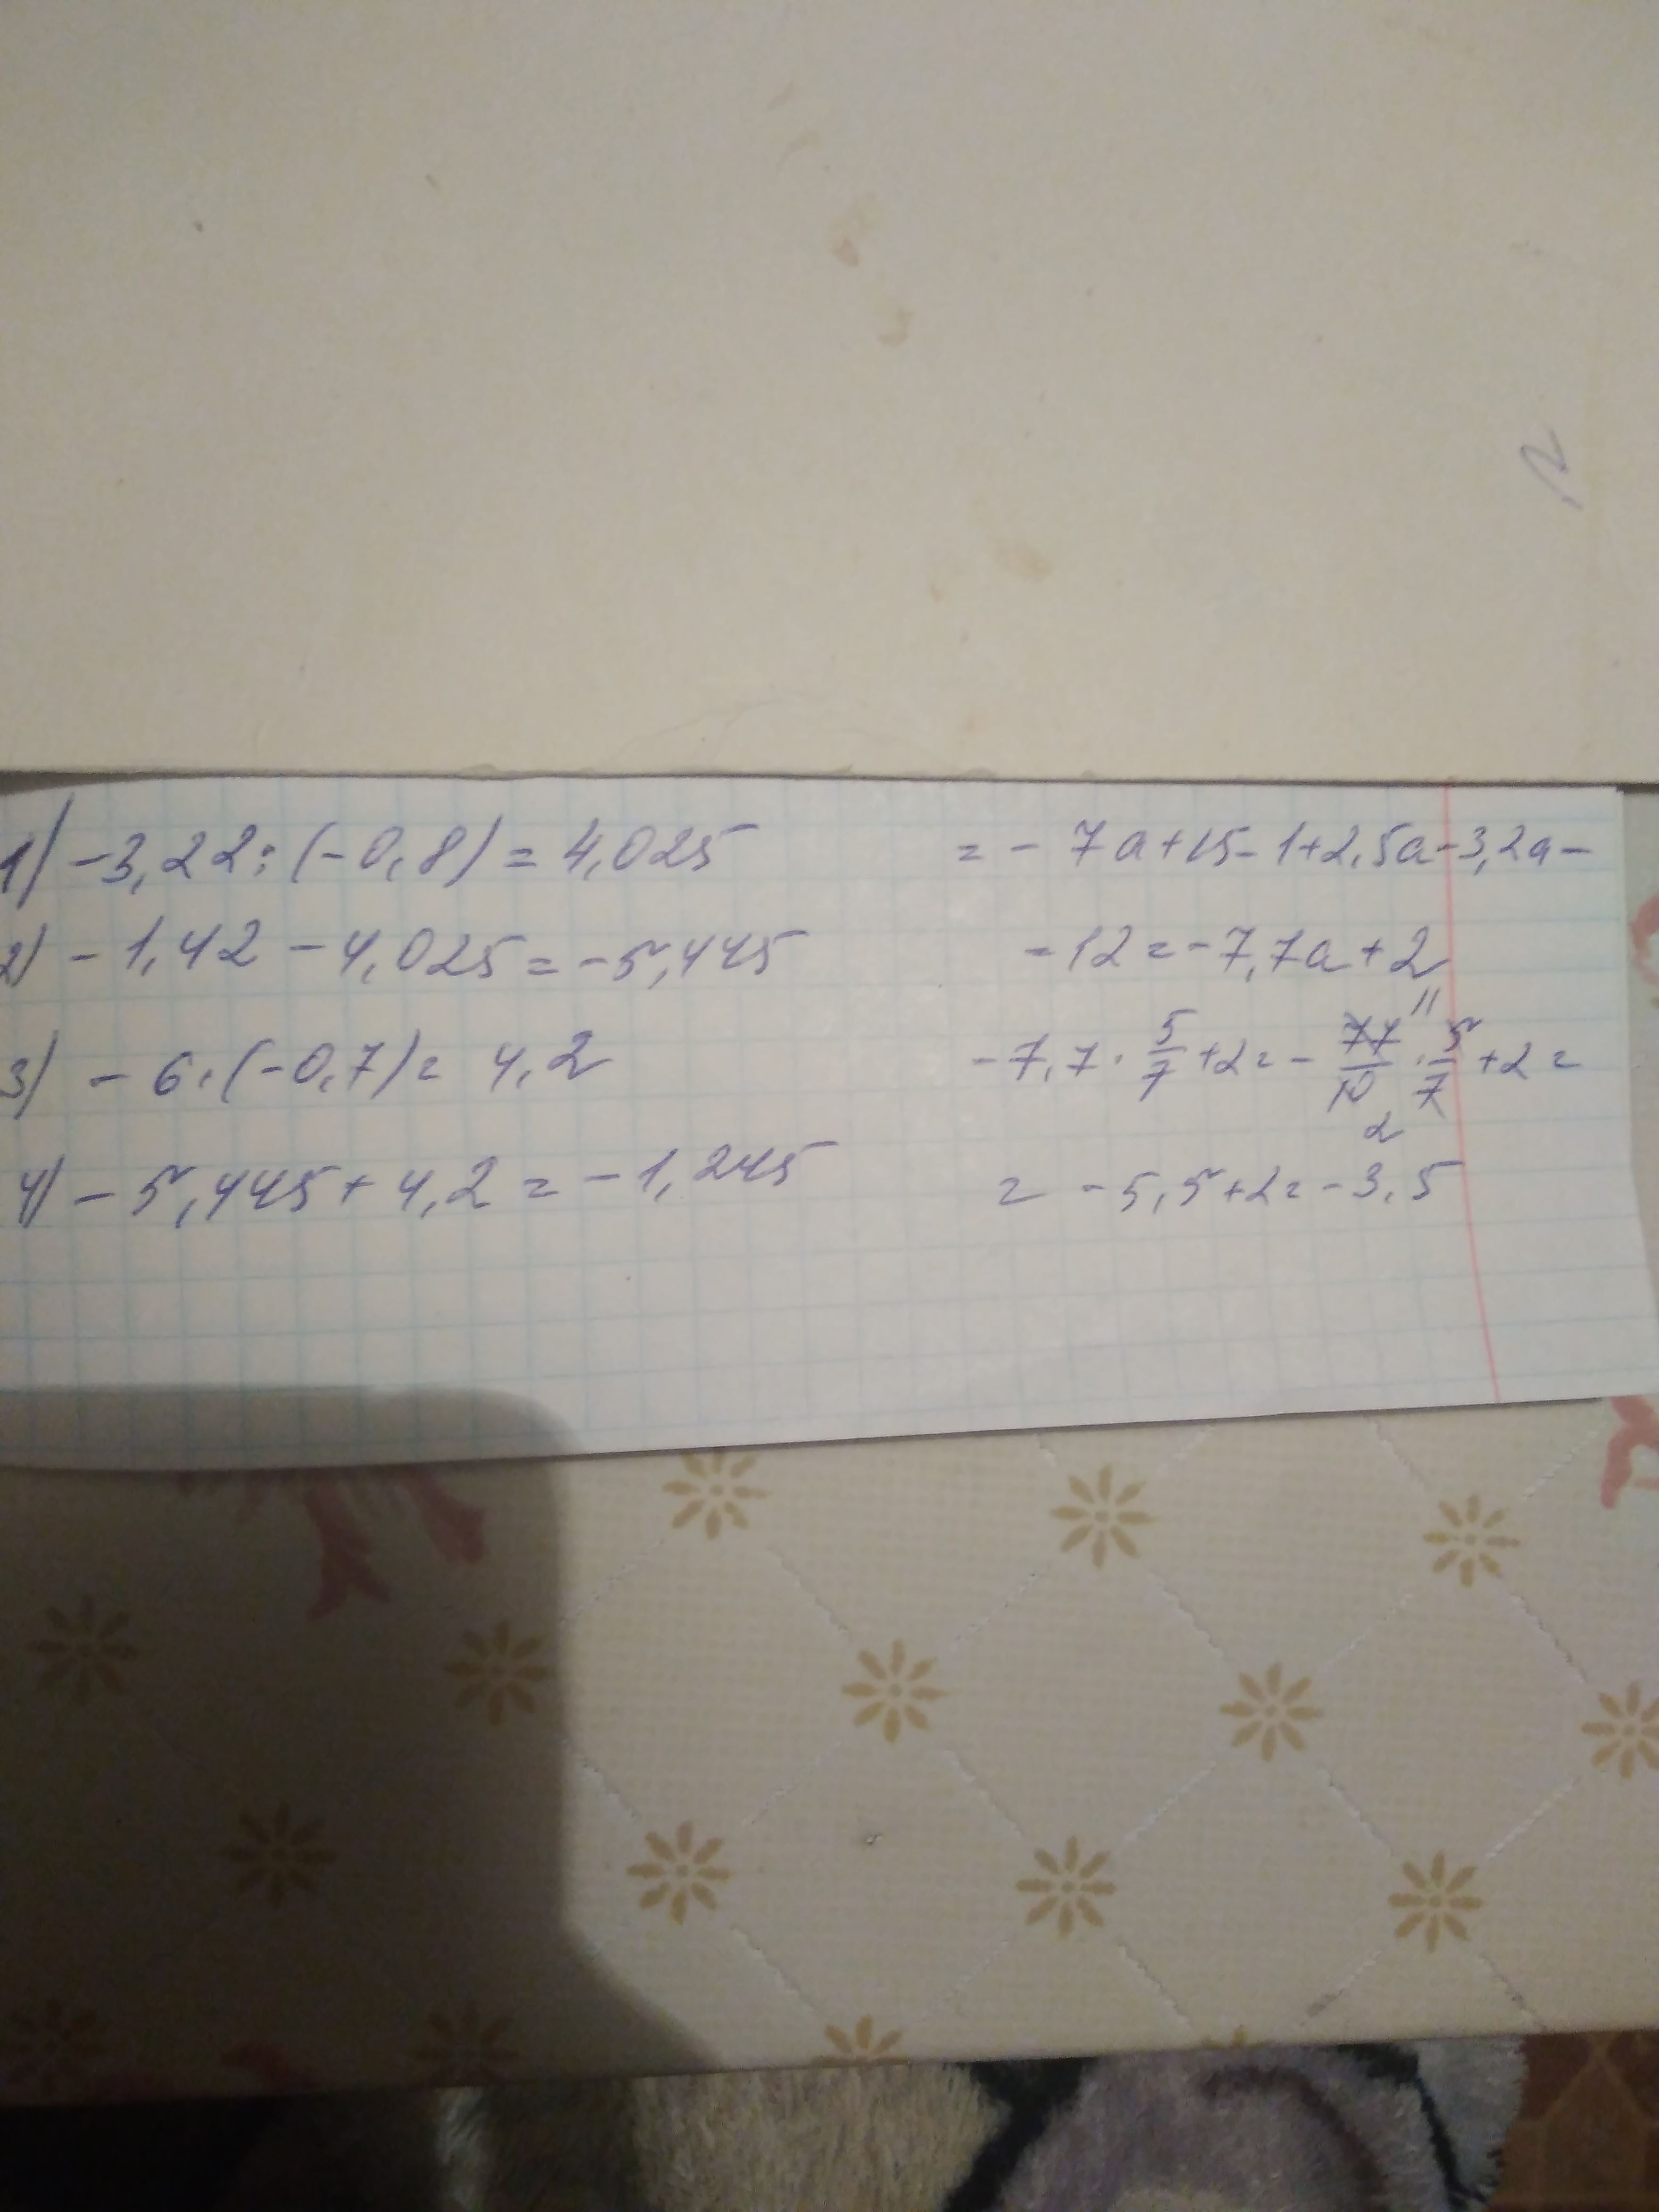 1) -3,22:(-0,8)=4,025
2) -1,42-4,025=-5,445
3) -6·(-0,7)=4,2
4) -5,445+4,2=-1,245
=-7a+15-1+2,5a-3,2a-
-12=-7,7a+2
-7,7·5/7+2=-77/10·5/7+2=
11
2
=-5,5+2=-3,5